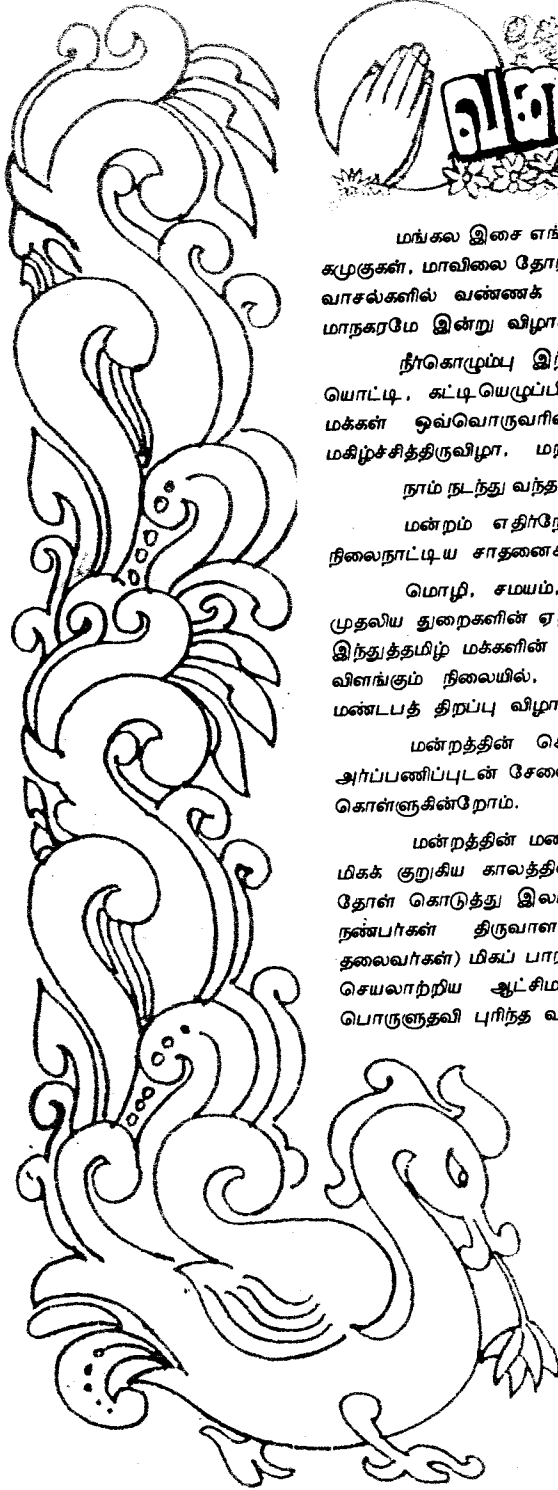 மங்கல இசை எங்
கமுகுகள், மாவிலை தோர
வாசல்களில் வண்ணக்
மாநகரமே இன்று விழா
நீர்கொழும்பு இந்
யொட்டி, கட்டியெழுப்பி
மக்கள் ஒவ்வொருவரி
மகிழ்ச்சித்திருவிழா, மற
நாம் நடந்து வந்த
மன்றம் எதிர்நே
நிலைநாட்டிய சாதனைக
மொழி, சமயம்,
முதலிய துறைகளின் ஏ
இந்துத்தமிழ் மக்களின்
விளங்கும் நிலையில்,
மண்டபத் திறப்பு விழா
மன்றத்தின் செ
அர்ப்பணிப்புடன் சேவை
கொள்ளுகின்றோம்.
மன்றத்தின் மண
மிகக் குறுகிய காலத்தி
தோள் கொடுத்து இலட
நண்பர்கள் திருவாள
தலைவர்கள்) மிகப் பாரா
செயலாற்றிய ஆட்சிம
பொருளுதவி புரிந்த வ